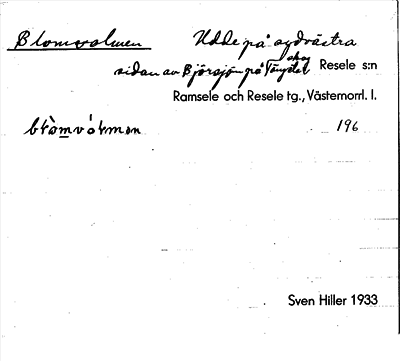 Blomvalmen Udde på sydvästra
sidan av Björsjön på Resele s:n
Ramsele och Resele tg., Västernorrl. l.
196
Sven Hiller 1933